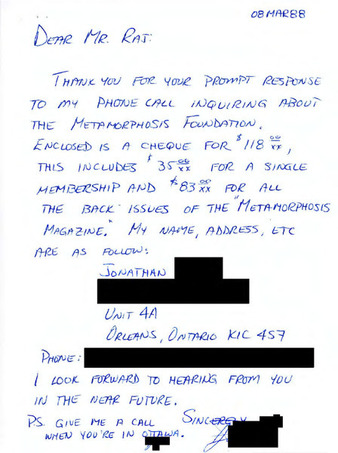 08 MAR 88
DEAR MR. RAJ:
THANK YOU FOR YOUR PROMPT RESPONSE
TO MY PHONE CALL INQUIRING ABOUT
THE METAMORPHOSIS FOUNDATION.
ENCLOSED IS A CHEQUE FOR $118 00/XX,
THIS INCLUDES $35 00/XX FOR A SINGLE
MEMBERSHIP AND $83 00/XX FOR ALL
THE BACK ISSUES OF THE "METAMORPHOSIS
MAGAZINE." MY NAME, ADDRESS, ETC
ARE AS FOLLOW:
JONATHAN
UNIT 4A
ORLEANS, ONTARIO K1C 4S7
PHONE:
I LOOK FORWARD TO HEARING FROM YOU
IN THE NEAR FUTURE.
SINCERELY
PS. GIVE ME A CALL
WHEN YOU'RE IN OTTAWA.